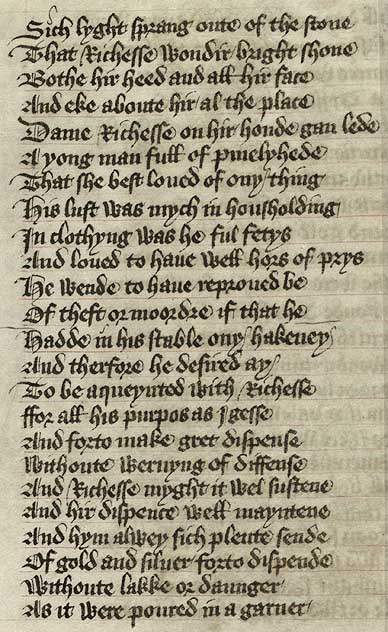 Sich lyght sprang oute of the stone
That Richesse wondir bright shone
Bothe hir heed and all hir face
And eke aboute hir al the place
Dame Richesse on hir honde gan lede
A yong man full of semelyhede
That she best loued of ony thing
His lust was mych in housholding
In clothyng was he ful fetys
And loued to haue well hors of prys
He wende to haue reproued be
Of theft or moordre if that he
Hadde in his stable ony hakeney
And therfore he desired ay
To be aqueynted with Richesse
ffor all his purpos as I gesse
And forto make gret dispense
Withoute wernyng of diffense
And Richesse myght it wel sustene
And hir dispence well mayntene
And hym alwey sich plente sende
Of gold and siluer forto dispende
Withoute lakke or daunger
As it were poured in a garner